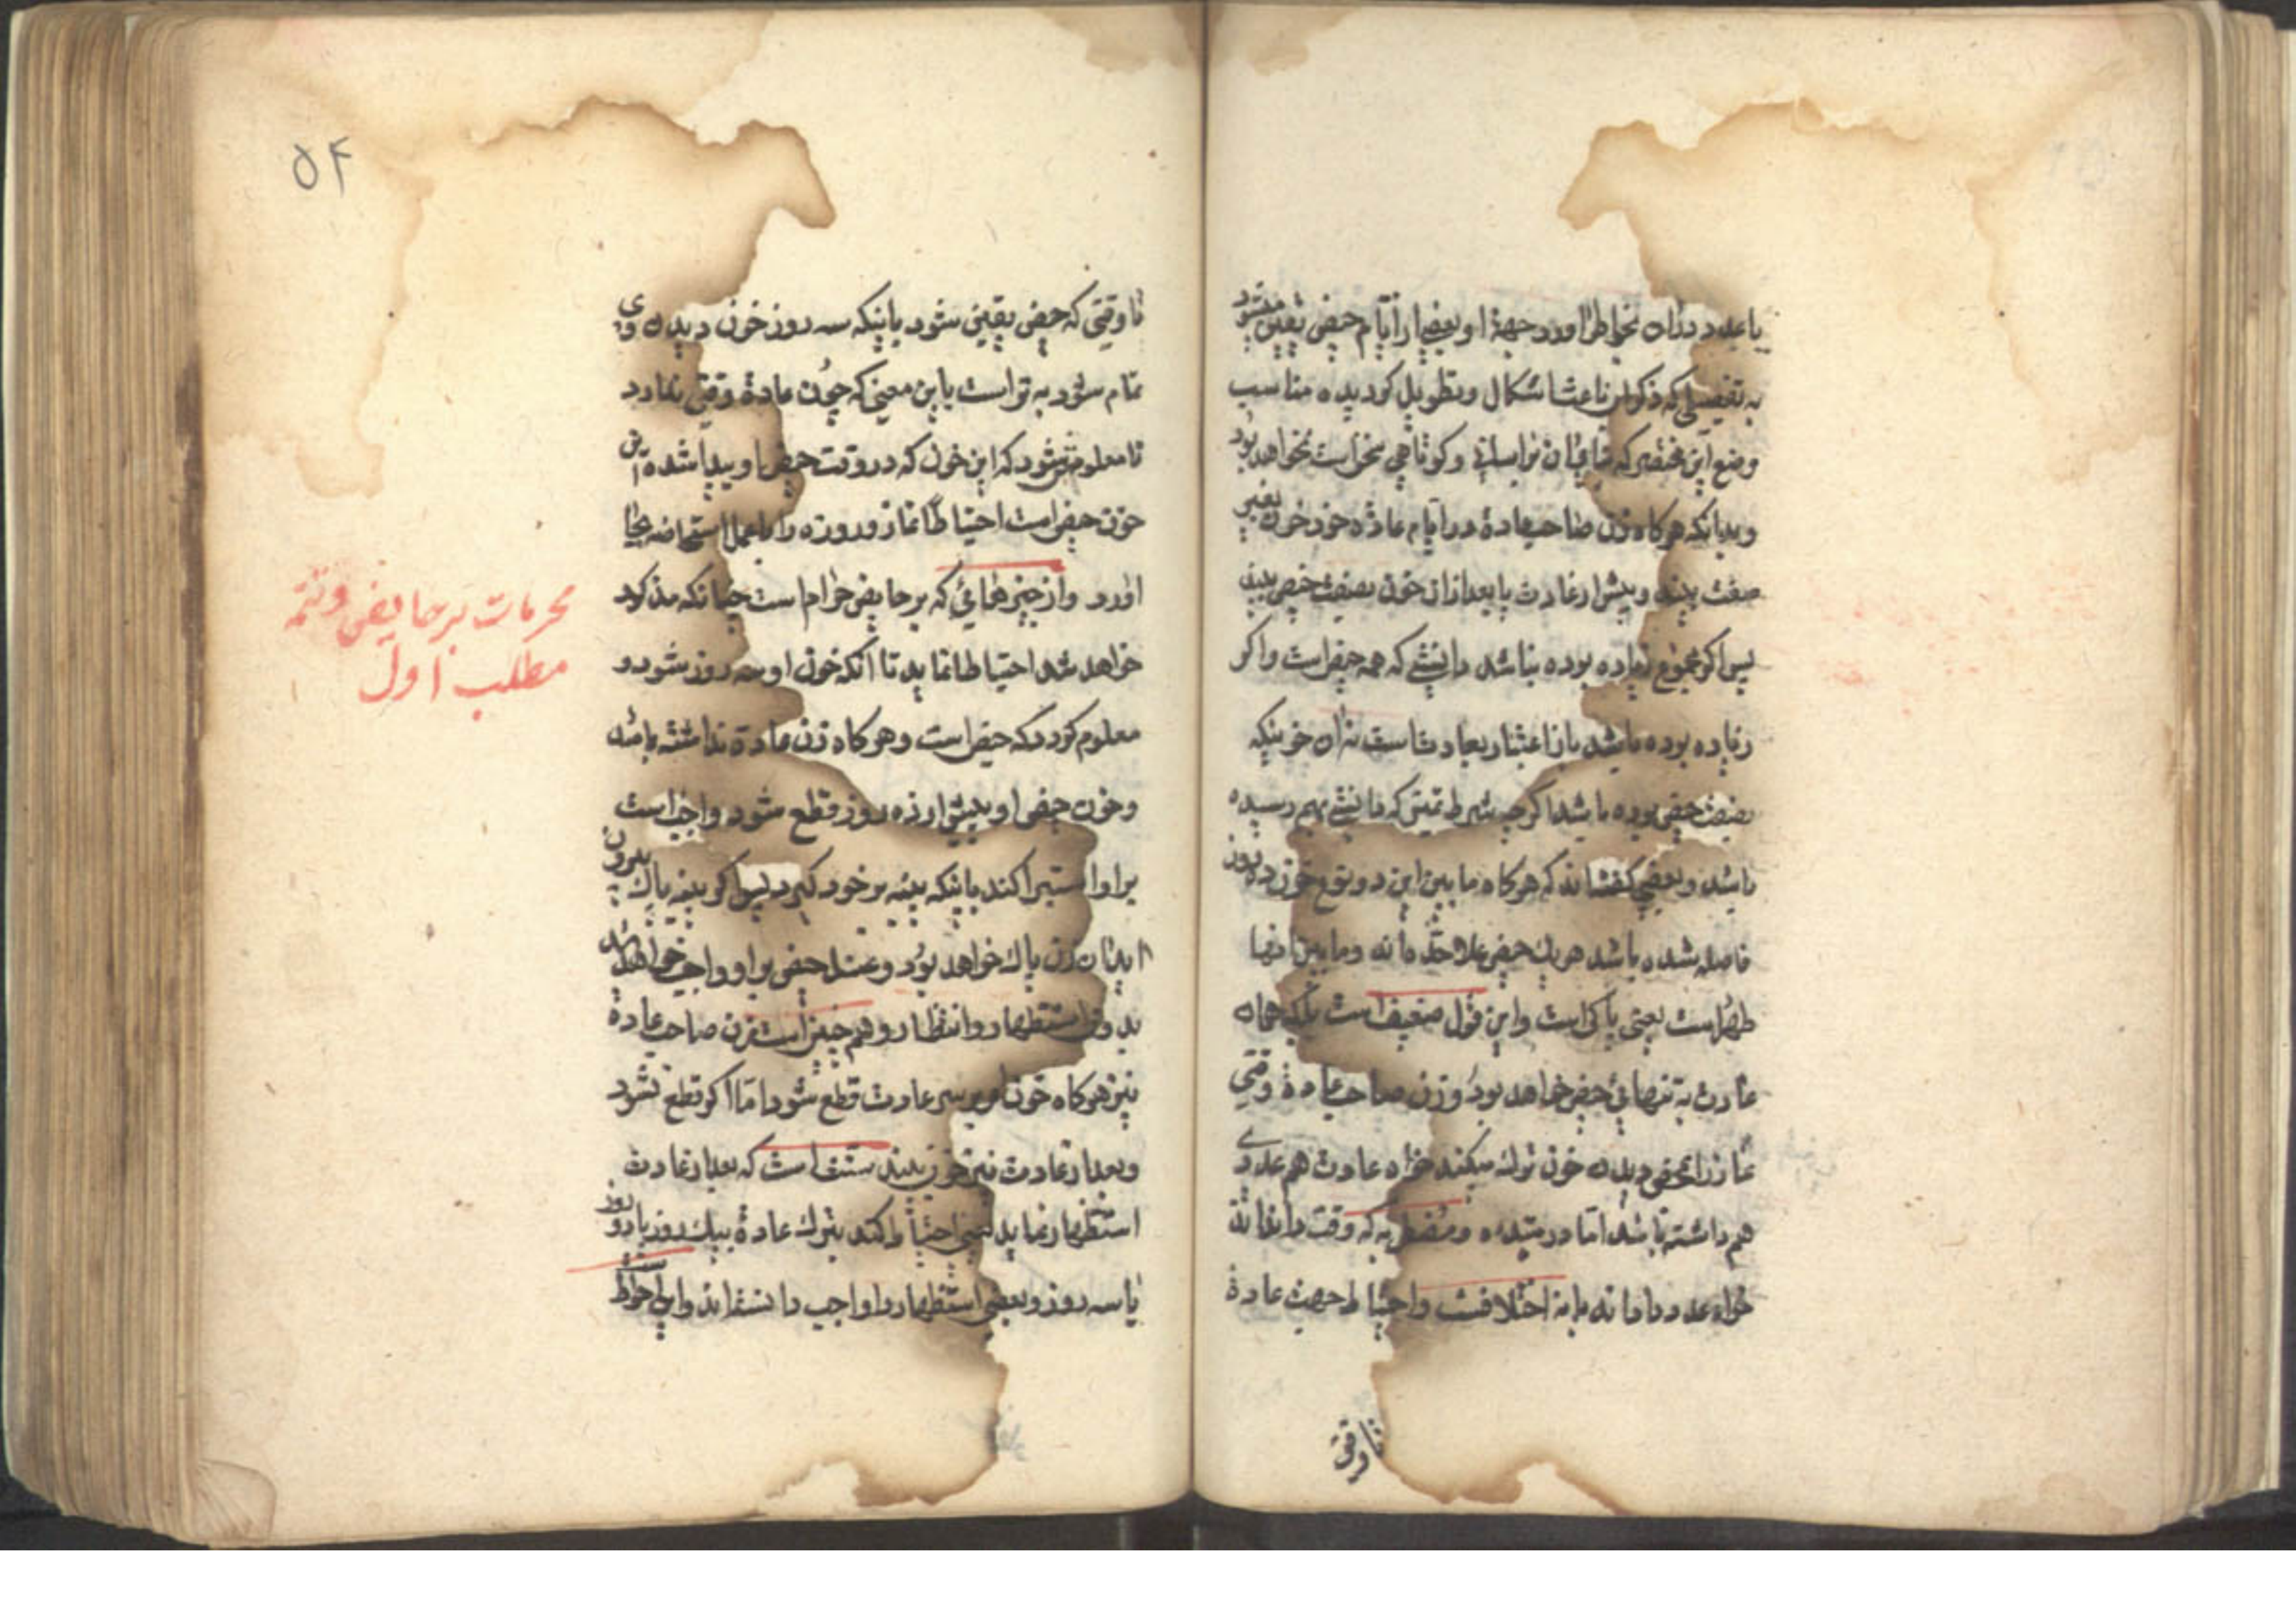 یا عدد در آن بخاطر آورد جهة او بعضی از ایام حیض تعیین میشود
به تفصیلی که ذکر آن باعث اشکال و تطویل گردیده مناسب
وضع این مختصر که بنای آن بر اسانی و کوتاهی سخن است نخواهد بود
و بدانکه هرگاه زن صاحب عادة در ایام عادة خود خون بغیر
صفت بیند و پیش از عادت یا بعد از آن خون بصفت حیض بیند
پس اگر مجموع زیاده بوده نباشد دانستی که همه حیض است و اگر
زیاده بوده باشد باز اعتبار بعادت است نه آن خونیکه
بصفت حیض بوده باشد اگرچه شرط تمیزی که دانستی بهم رسیده
باشد و بعضی گفته‌اند که هرگاه ما بین این دو نوع خون ده روز
فاصله شده باشد هریک حیض علاحده‌اند و ما بین آنها
طهر است یعنی پاکی است و این قول ضعیف است بلکه همان
عادت به تنهائی حیض خواهد بود و زن صاحب عادة وقتی
نماز را بمحض دیدن خون ترک میکند خواه عادت هم عددی
هم داشته باشد اما در مبتدءه و مضطربه که وقت نداند
خواه عدد داند یا نه اختلافست و احتیاط جهت عادة
تا وقتی
تا وقتی که حیض یقین شود باینکه سه روز خون دیدن وی
تمام شود بهتر است باین معنی که چون عادة وقتی ندارد
تا معلوم شود که این خون که در وقت حیض او پیدا شده این
خون حیض است احتیاطا نماز و روزه را با عمل استحاضه بجا
آورد و از چیزهائی که بر حایض حرام است چنانکه مذکور
خواهد شد احتیاطا نماید تا آنکه خون او سه روز شود و
معلوم گردد که حیض است و هرگاه زن عادة نداشته باشد
و خون حیض او پیش از ده روز قطع شود واجب است
بر او استبرا کند باینکه پنبه بر خود گیرد پس اگر پنبه پاک بیرون
آید آن زن پاک خواهد بود و غسل حیض بر او واجب خواهد شد
بدون استظهار و انتظار و همچنین است زن صاحب عادة
نیز هرگاه خون او بر سر عادت قطع شود اما اگر قطع نشود
و بعد از عادت نیز خون بیند سنت است که بعد از عادت
استظهار نماید یعنی احتیاط کند بترک عادة بیک روز یا دو روز
یا سه روز و بعضی استظهار را واجب دانسته‌اند و این احوط
۵۴
محرمات بر حایض و تتمه
مطلب اول